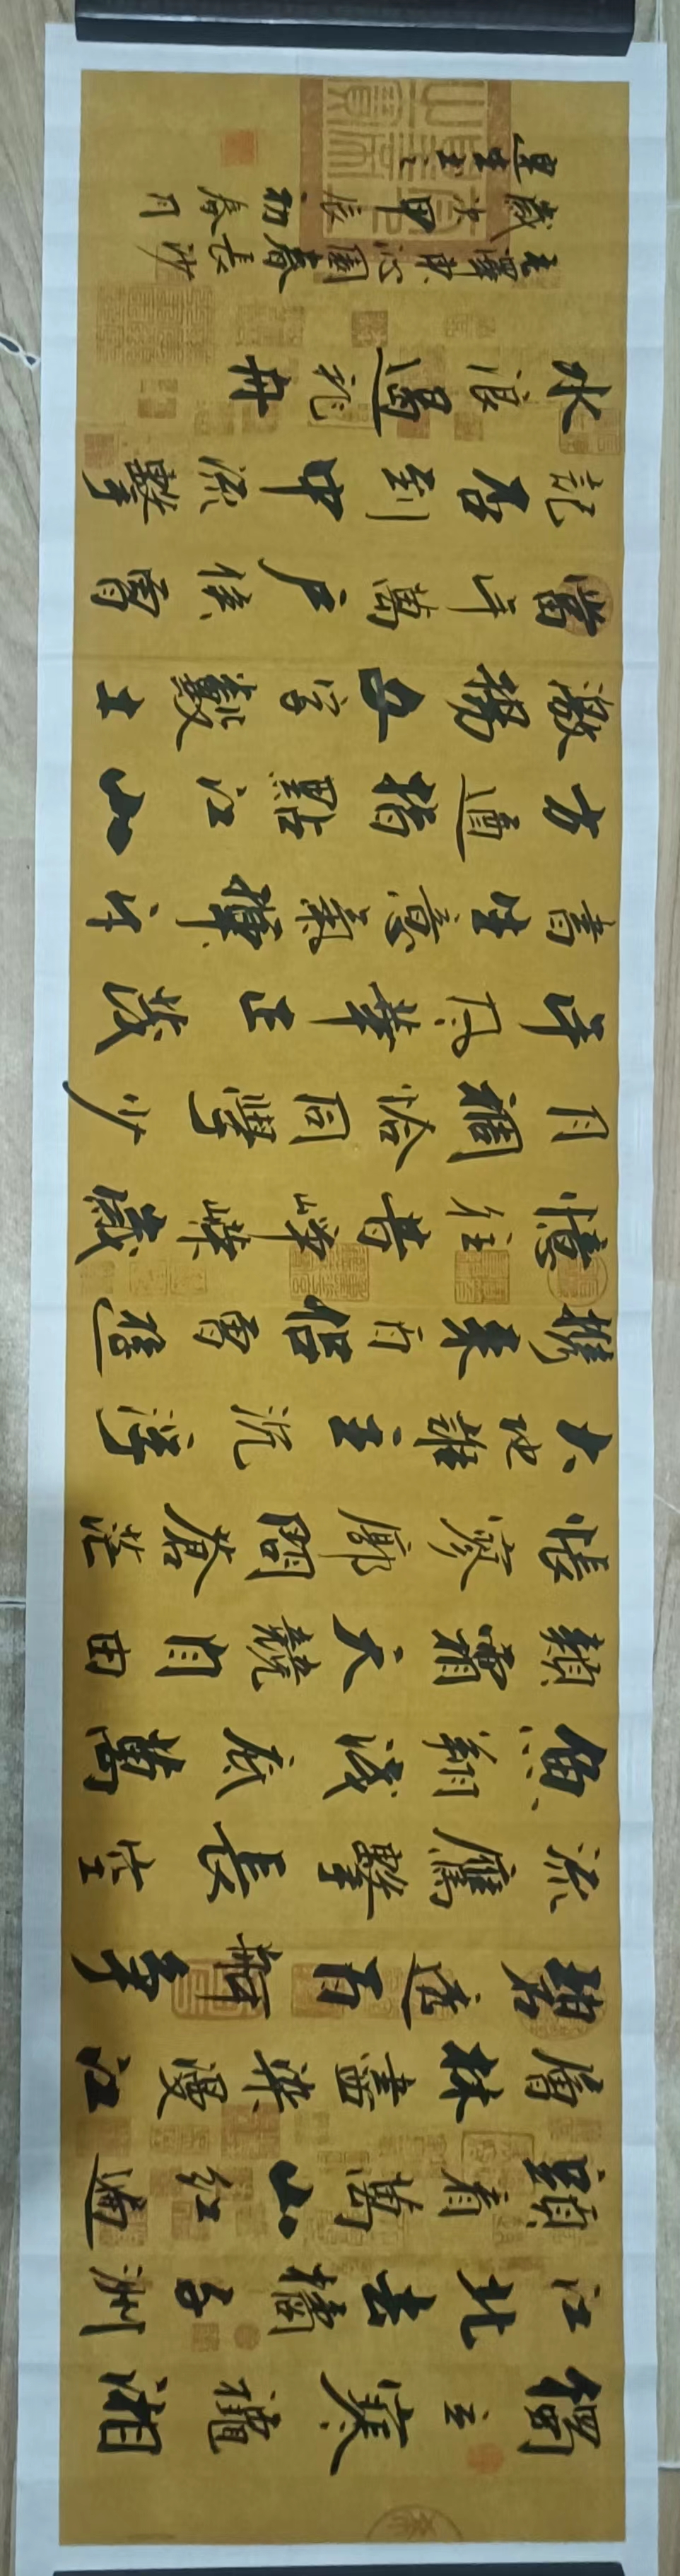 獨立寒穐湘
江北去橘子洲
頭看萬山紅遍
層林盡染漫江
碧透百舸爭
流鷹擊長空
魚翔淺底萬
類霜天競自由
悵寥廓問蒼茫
大地誰主沉浮
攜來百侶曾遊
憶往昔崢嶸歲
月稠恰同學少
年風華正茂
書生意氣揮斥
方遒指點江山
激揚文字糞土
當年萬戶侯曾
記否到中流擊
水浪遏飛舟
毛澤東沁園春長沙
歲次甲辰初春月